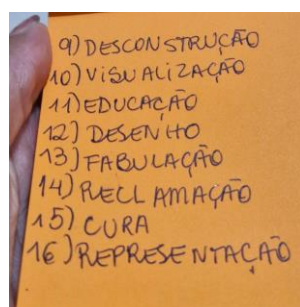 9) DESCONSTRUÇÃO
10) VISUALIZAÇÃO
11) EDUCAÇÃO
12) DESENHO
13) FABULAÇÃO
14) RECLAMAÇÃO
15) CURA
16) REPRESENTAÇÃO